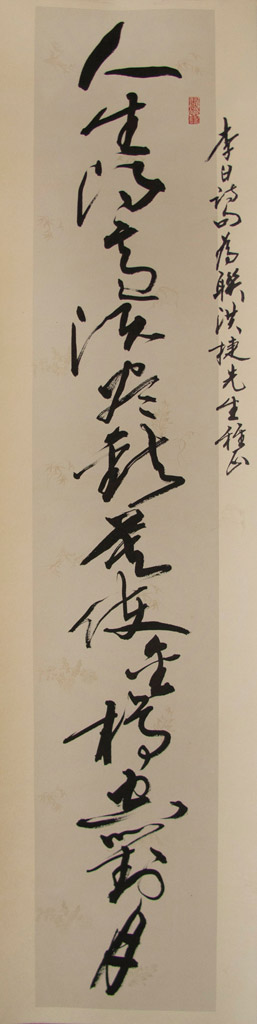 李白詩句為聯洪捷先生雅正
人生得意须尽歡莫使金樽空對月